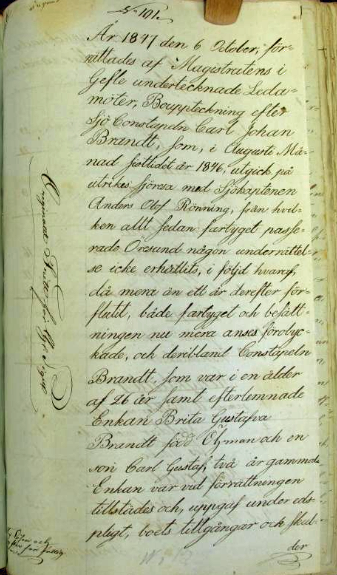 No 191.
År 1847 den 6 October, för-
rättades af Magistratens i
Gefle undertecknade Leda-
möter, Bouppteckning efter
Sjö Constapeln Carl Johan
Brandt, som, i Augusti Må-
nad sistlidit år 1846, utgick på
utrikes sjöresa med Sjökaptenen
Anders Olof Rönning, från hvil-
ken allt sedan fartyget passe-
rade Öresund någon underrättel-
se icke erhållits, i följd hvaraf,
då mera än ett år derefter för-
flutit, både fartyget och besätt-
ningen nu mera anses förolyc-
kade, och deribland Constapeln
Brandt, som var i en ålder
af 26 år samt efterlemnade
Enkan Brita Gustafva
Brandt född Öhman och en
son Carl Gustaf, två år gammal.
Enkan var vid förrättningen
tillstädes och, uppgaf under eds-
plegt, boets tillgångar och skul-
der